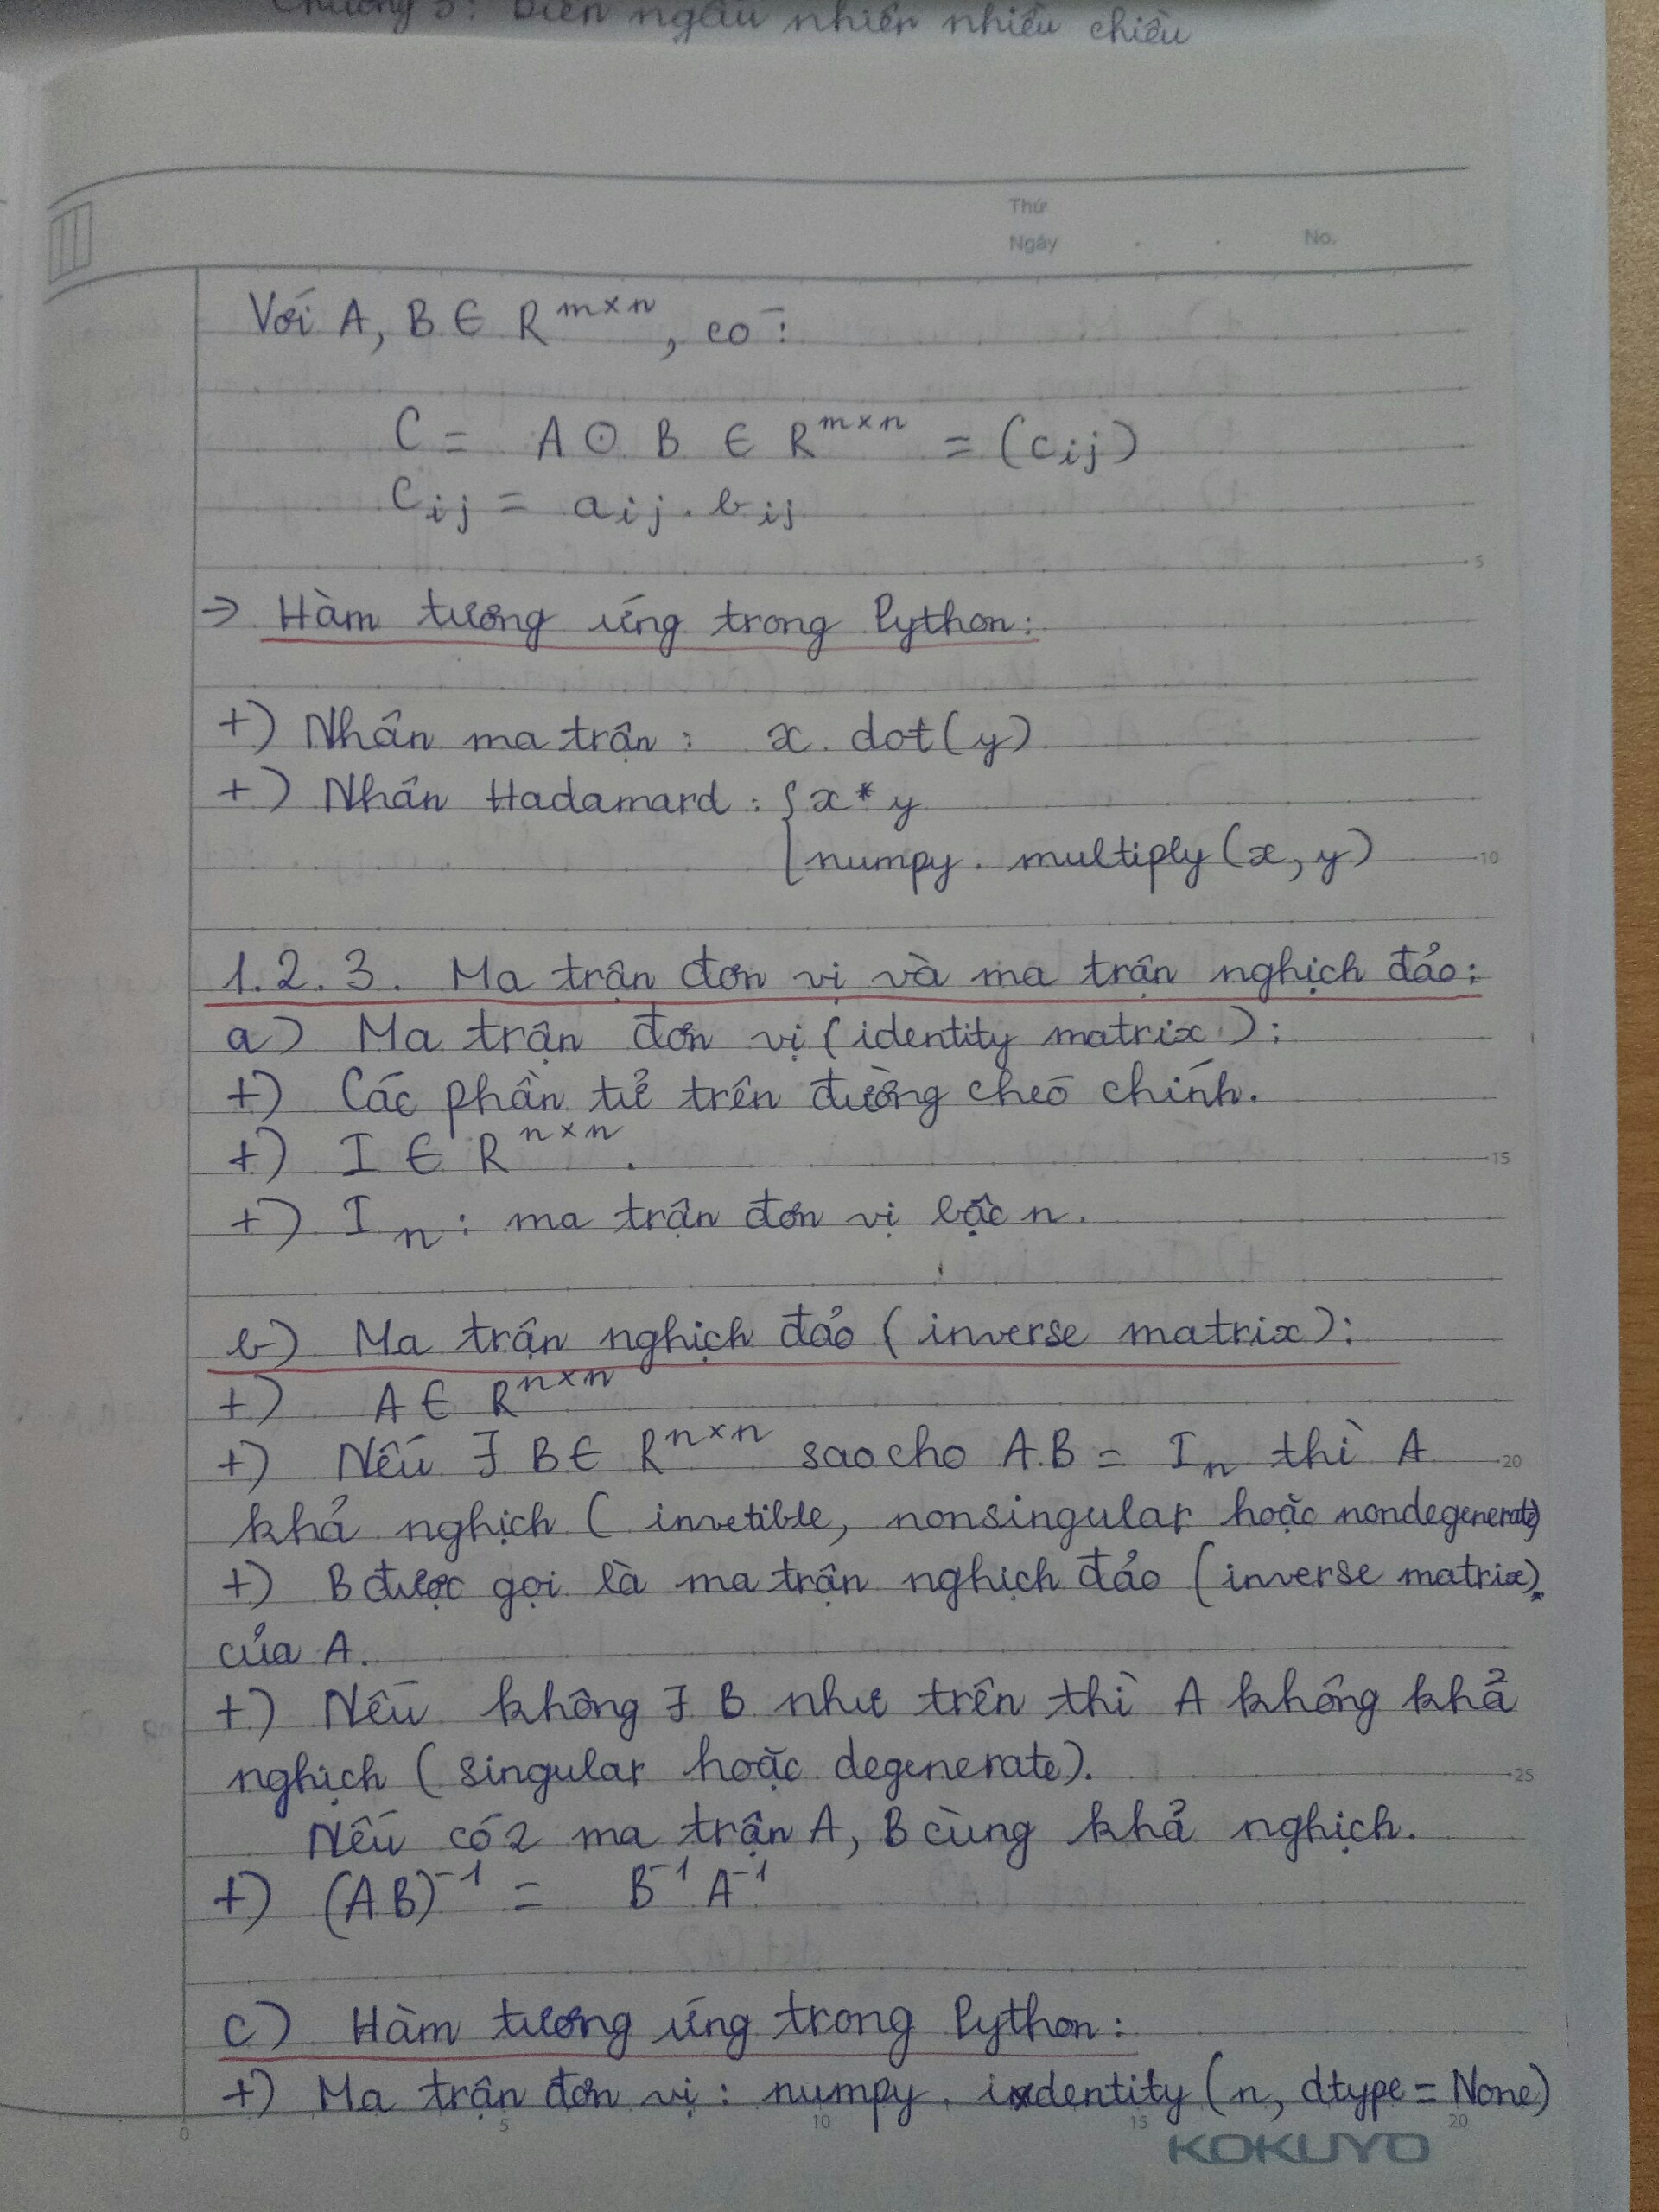 Chương 3: Biến ngẫu nhiên nhiều chiều
Thứ
Ngày . . No.
Với A, B ∈ R^{m×n}, có:
C = A ⊙ B ∈ R^{m×n} = (c_{ij})
c_{ij} = a_{ij} . b_{ij}
5
→ Hàm tương ứng trong Python:
+) Nhân ma trận : x. dot(y)
+) Nhân Hadamard : { x * y
numpy. multiply(x, y)
10
1.2.3. Ma trận đơn vị và ma trận nghịch đảo:
a) Ma trận đơn vị (identity matrix):
+) Các phần tử trên đường chéo chính.
+) I ∈ R^{n×n}.
15
+) I_n : ma trận đơn vị bậc n.
b) Ma trận nghịch đảo (inverse matrix):
+) A ∈ R^{n×n}
+) Nếu ∃ B ∈ R^{n×n} sao cho A.B = I_n thì A
20
khả nghịch ( invetible, nonsingular hoặc nondegenerate)
+) B được gọi là ma trận nghịch đảo (inverse matrix)
của A.
+) Nếu không ∃ B như trên thì A không khả
nghịch ( singular hoặc degenerate).
25
Nếu có 2 ma trận A, B cùng khả nghịch.
+) (AB)^{-1} = B^{-1} A^{-1}
c) Hàm tương ứng trong Python:
+) Ma trận đơn vị : numpy. identity (n, dtype = None)
0 5 10 15 20
KOKUYO